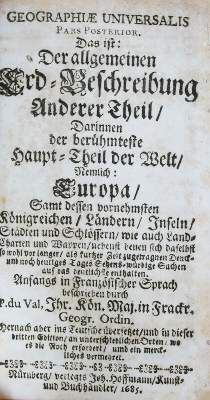 GEOGRAPHIÆ UNIVERSALIS
PARS POSTERIOR.
Das ist:
Der allgemeinen
Erd-Beschreibung
Anderer Theil/
Darinnen
der berühmteste
Haupt-Theil der Welt/
Nemlich:
Europa/
Samt dessen vornehmsten
Königreichen/ Ländern/ Inseln/
Städten und Schlössern/ wie auch Land-
Charten und Wappen/ nebenst denen sich daselbst
so wohl vor langer/ als kurtzer Zeit zugetragnen Denck-
und noch heutiges Tages Sehens-würdige Sachen
auf das deutlichste enthalten.
Anfangs in Frantzösischer Sprach
beschrieben durch
P. du Val, Ihr. Kön. Maj. in Franckr.
Geogr. Ordin.
Hernach aber ins Teutsche übersetzet/ und in dieser
dritten Edition/ an unterschiedlichen Orten/ wo
es die Noth erfordert/ und ein merck-
liches vermehret.
Nürnberg/ verlegts Joh. Hoffmann/ Kunst-
und Buchhändler/ 1685.